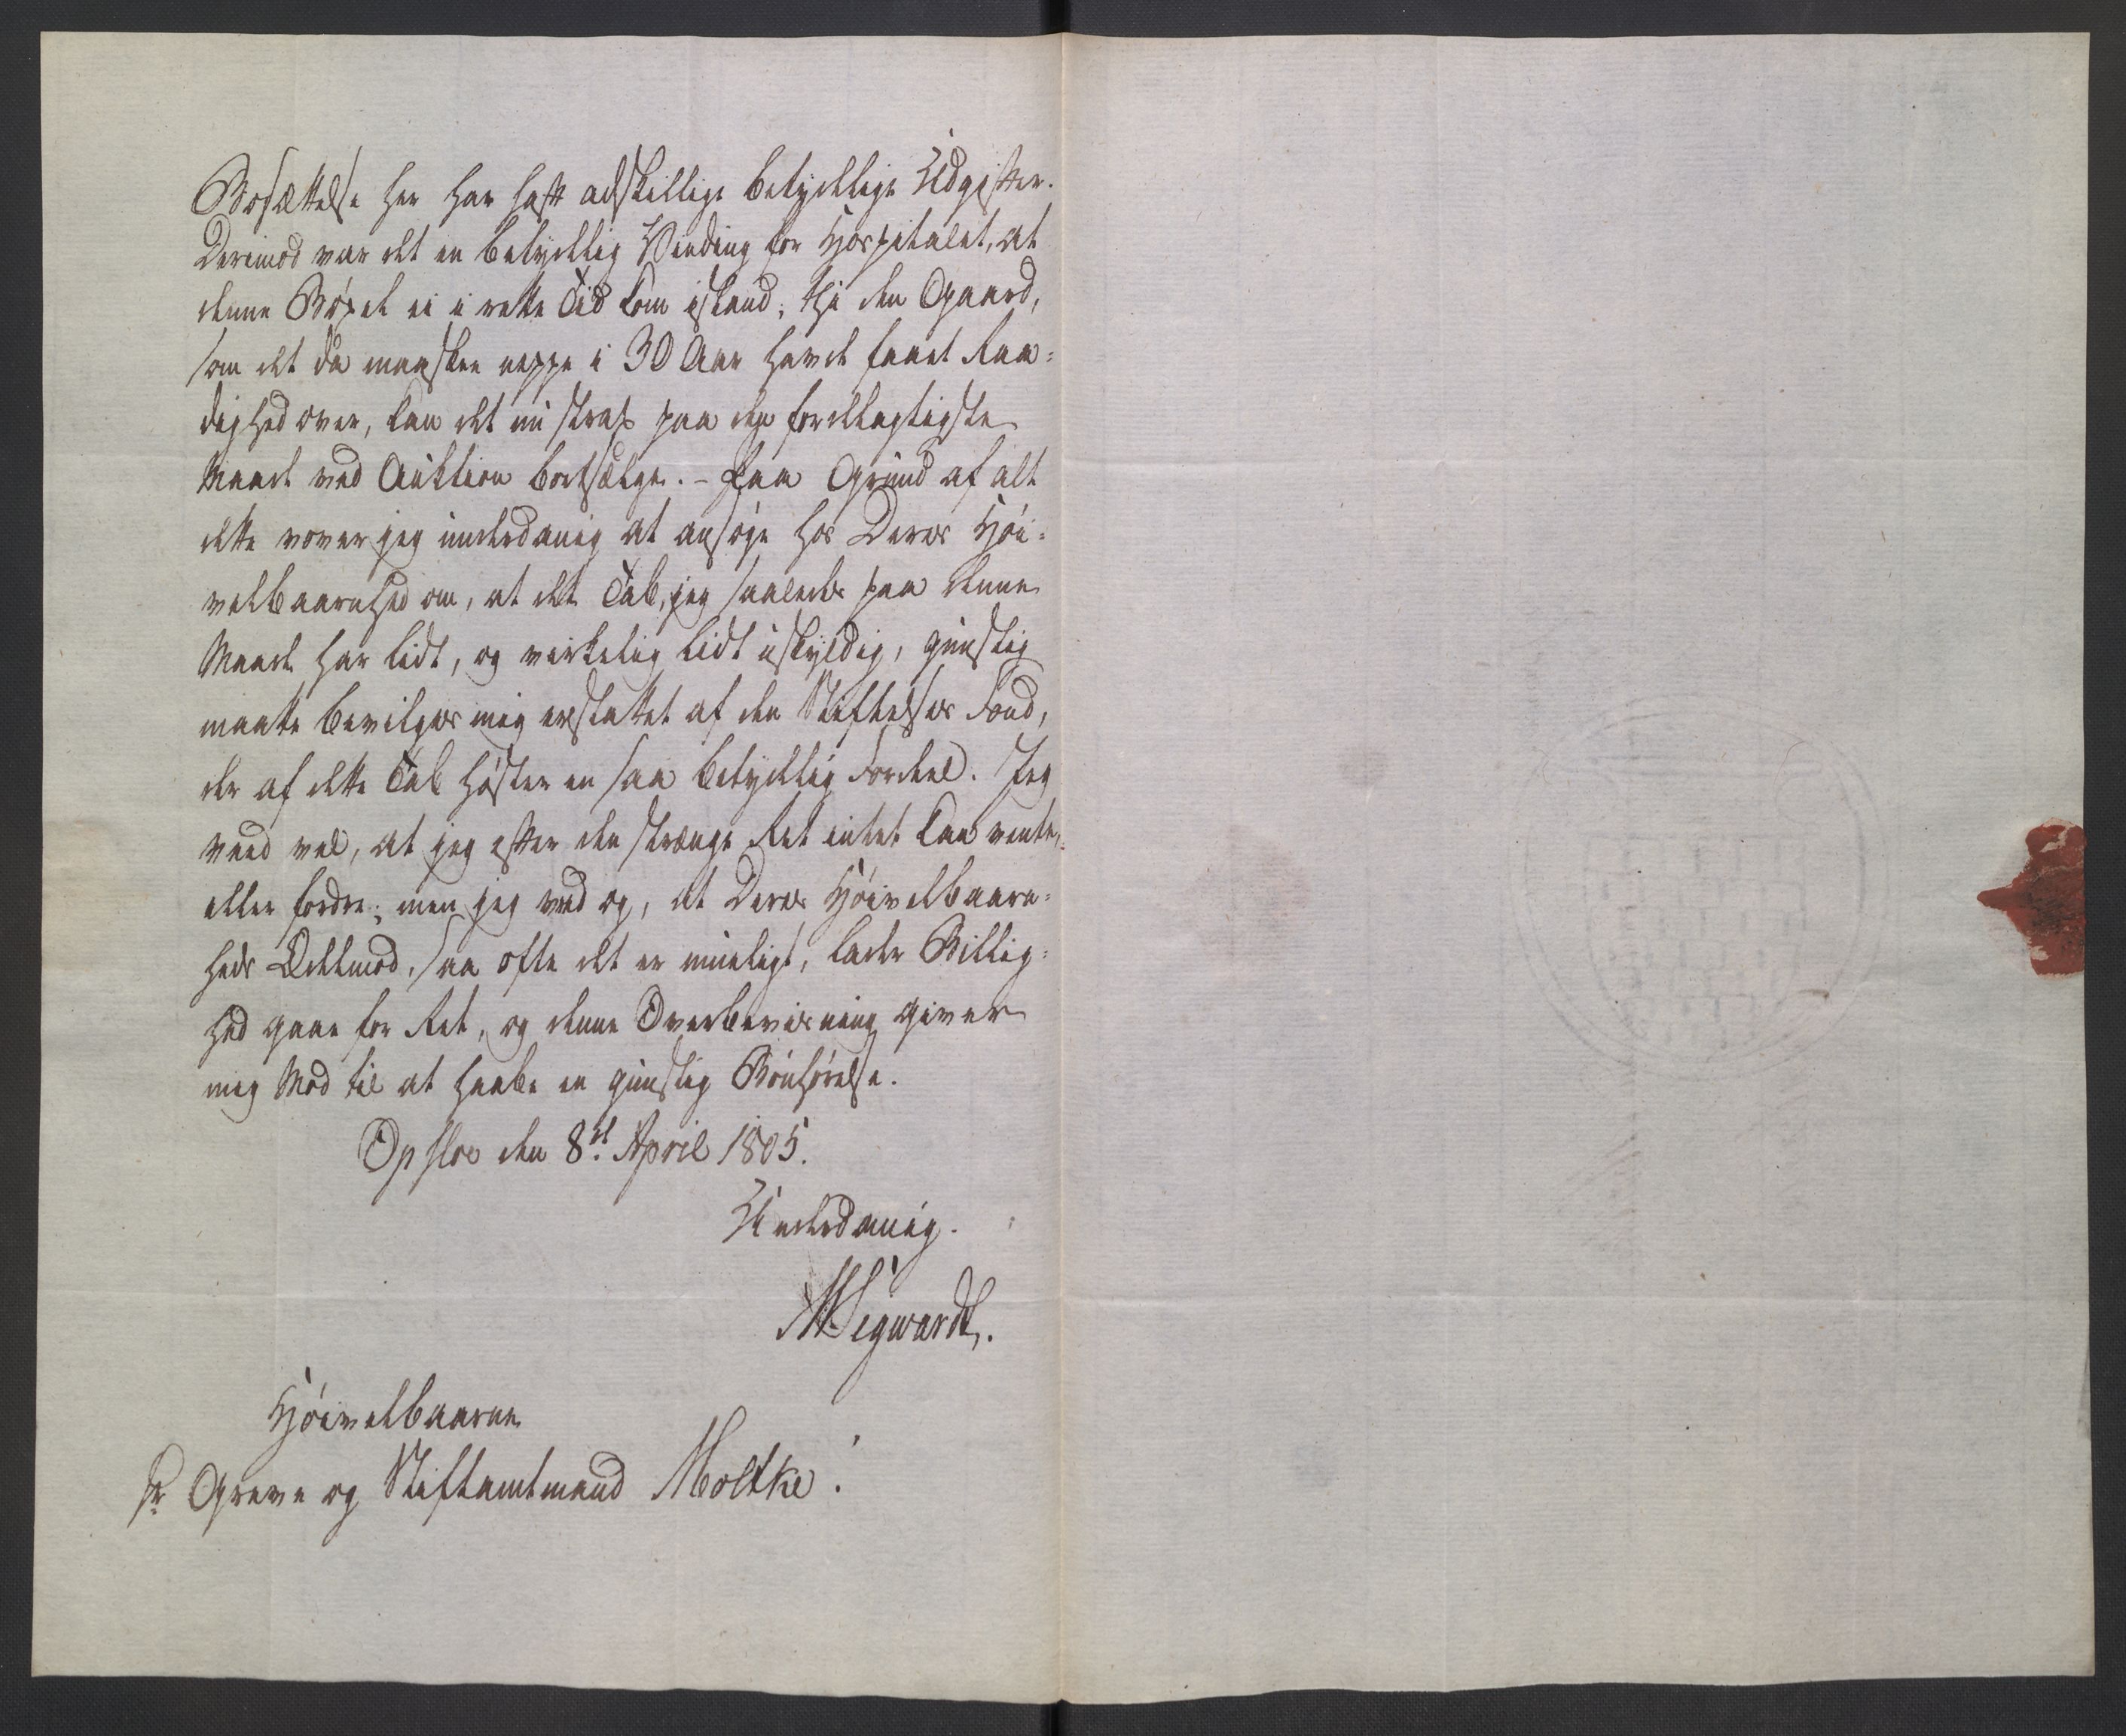 Bosættelse her har haft adskillige betydelige Udgifter.
Derimod var det en betydelig Vinding for Hospitalet, at
denne Bøxel ei i rette Tid kom istand; thi den Gaard,
som det da maaskee neppe i 30 Aar havde faaet Raa-
dighed over, kan det nu strax paa den fordelagtigste
Maade ved Auktion bortsælge. - Paa Grund af alt
dette vover jeg underdanig at ansøge hos Deres Høi-
velbaarnhed om, at det Tab, jeg saaledes paa denne
Maade har lidt, og virkelig lidt uskyldig, gunstig
maatte bevilges mig erstattet af den Stiftelses Fond,
der af dette Tab høster en saa betydelig Fordeel. Jeg
veed vel, at jeg efter den strænge Ret intet kan vente,
eller fordre; men jeg veed og, at Deres Høivelbaarn-
heds Ædelmod, saa ofte det er mueligt, lader Billig-
hed gaae for Ret, og denne Overbeviisning giver
mig Mod til at haabe en gunstig Bønhørelse.
Opsloe den 8d. April 1805.
Underdanig.
MSigwardt.
Høivelbaarne
Hr Greve og Stiftamtmand Moltke!